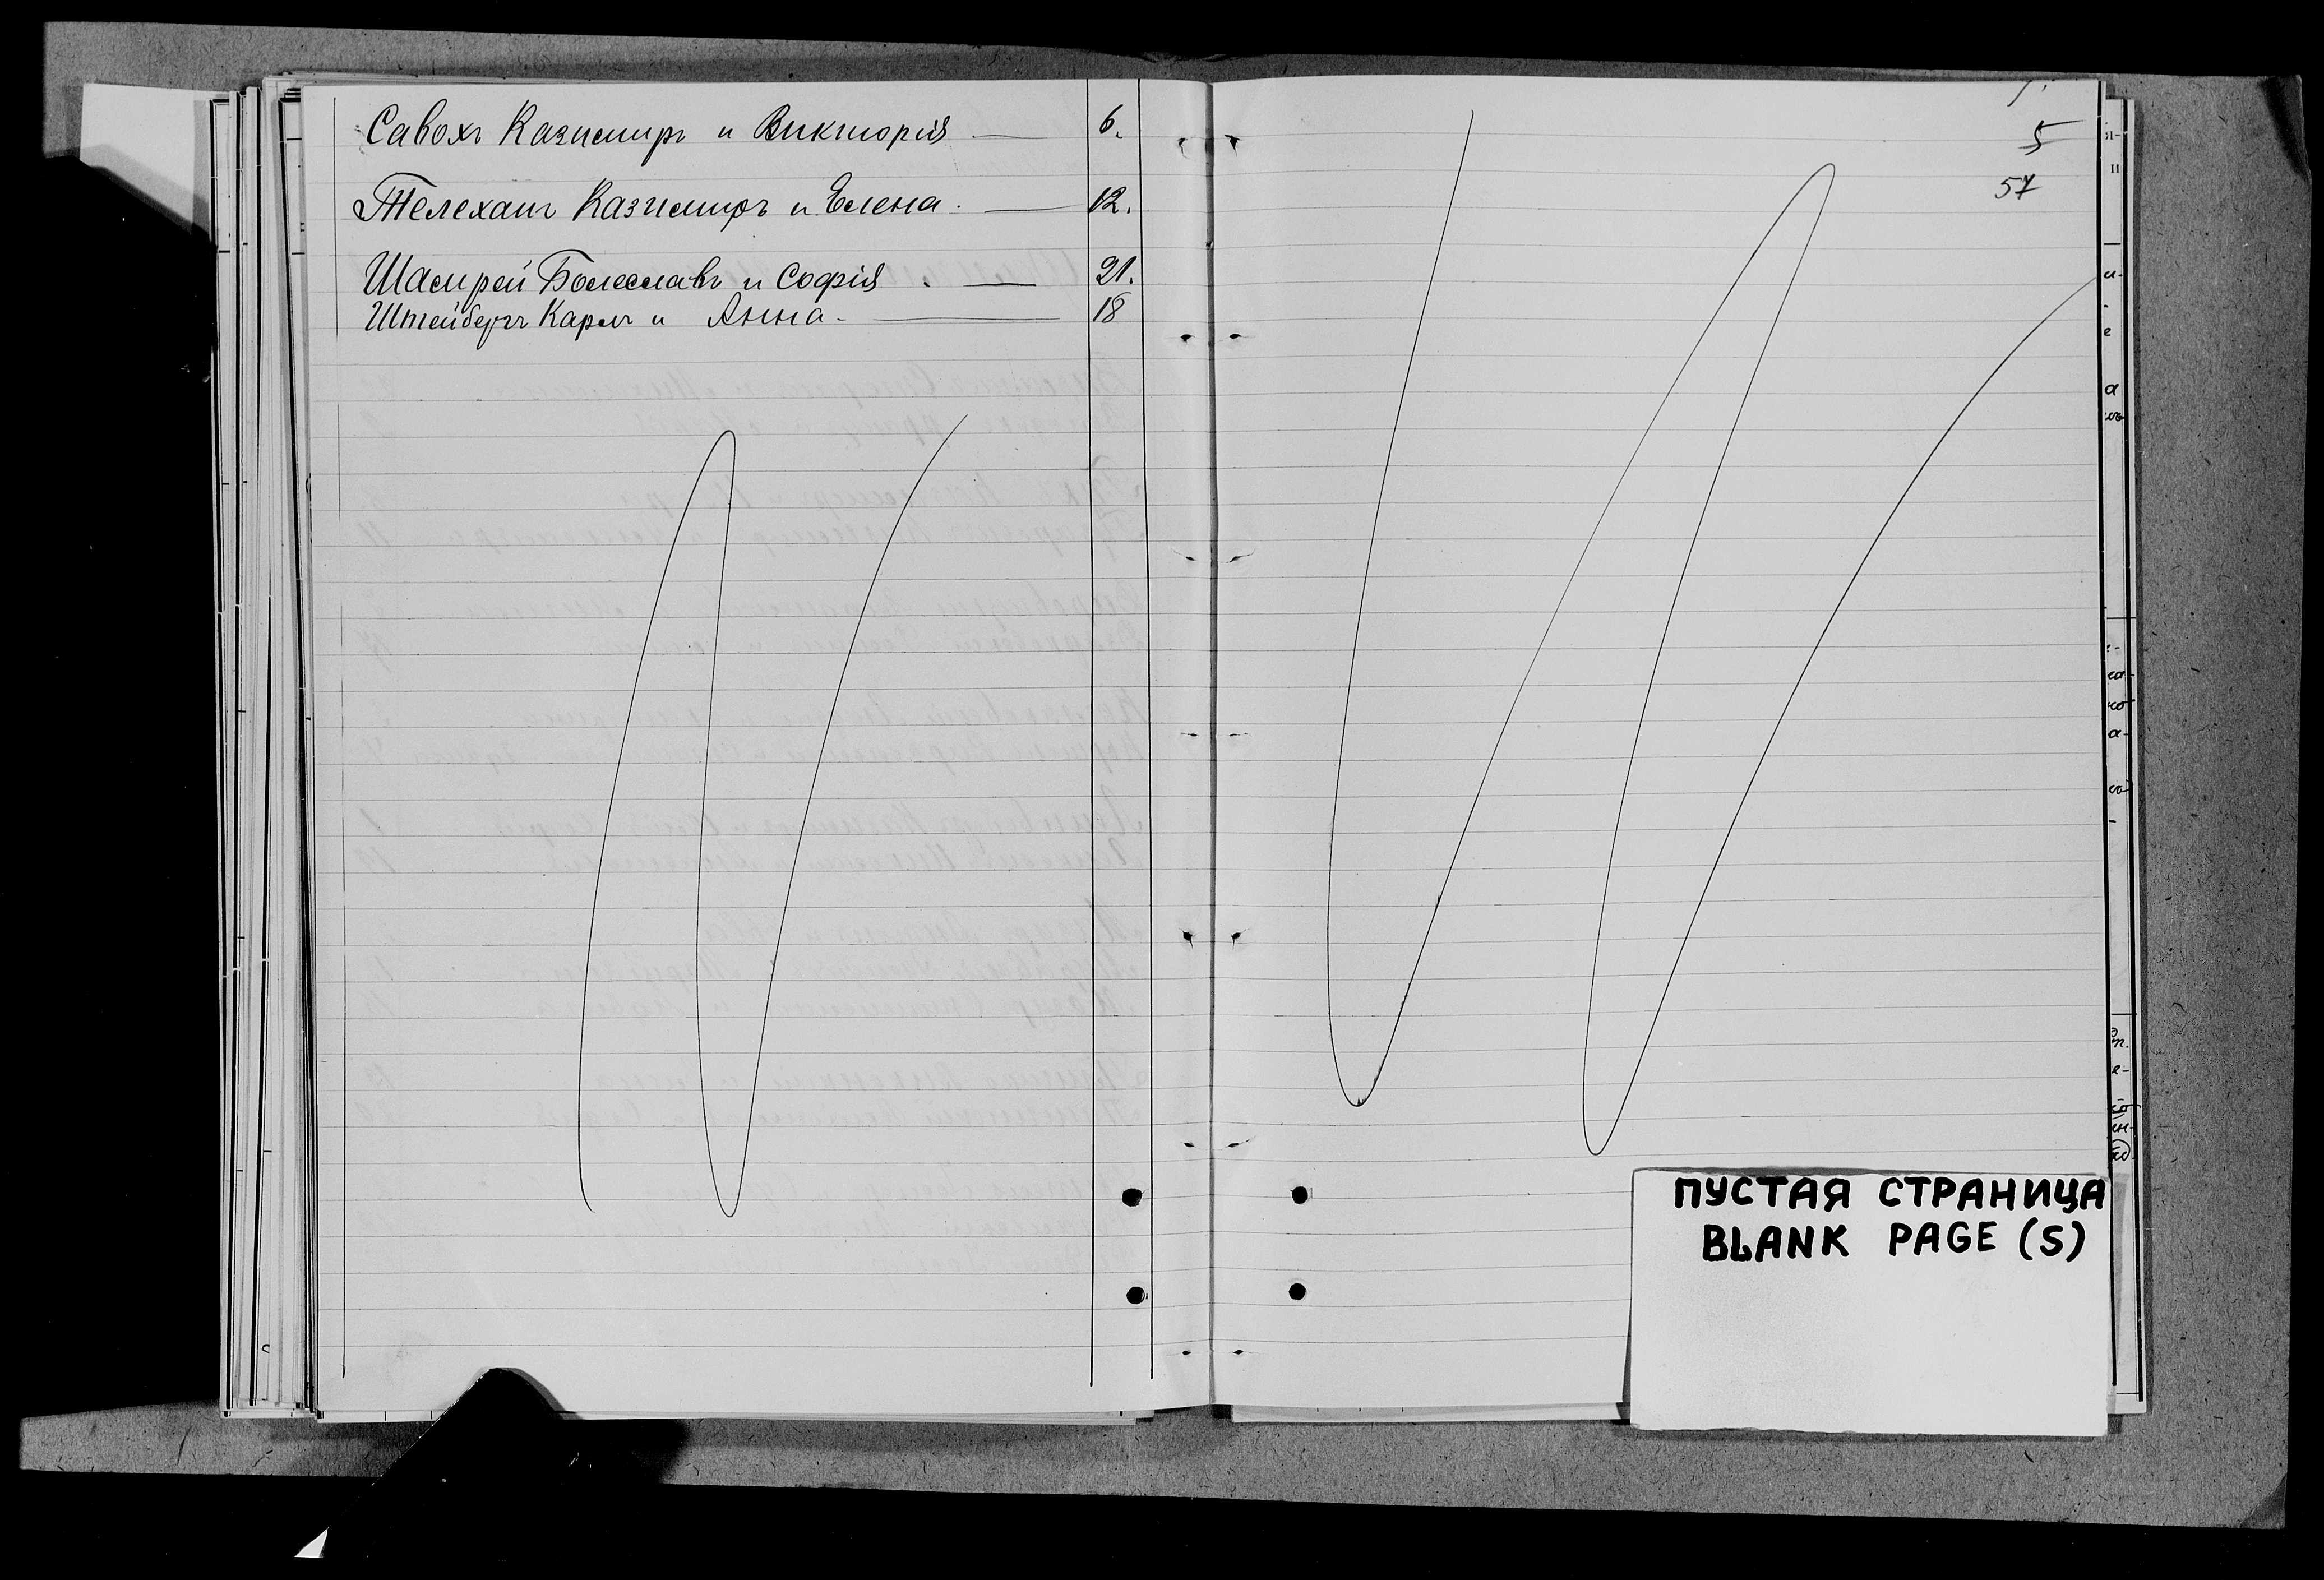 Савохъ Казимиръ и Викторія — 6.
Телеханъ Казимиръ и Елена. — 12.
Шамрей Болеславъ и Софія. — 21.
Штейбергъ Карлъ и Анна — 18
5
57
ПУСТАЯ СТРАНИЦА
BLANK PAGE (S)